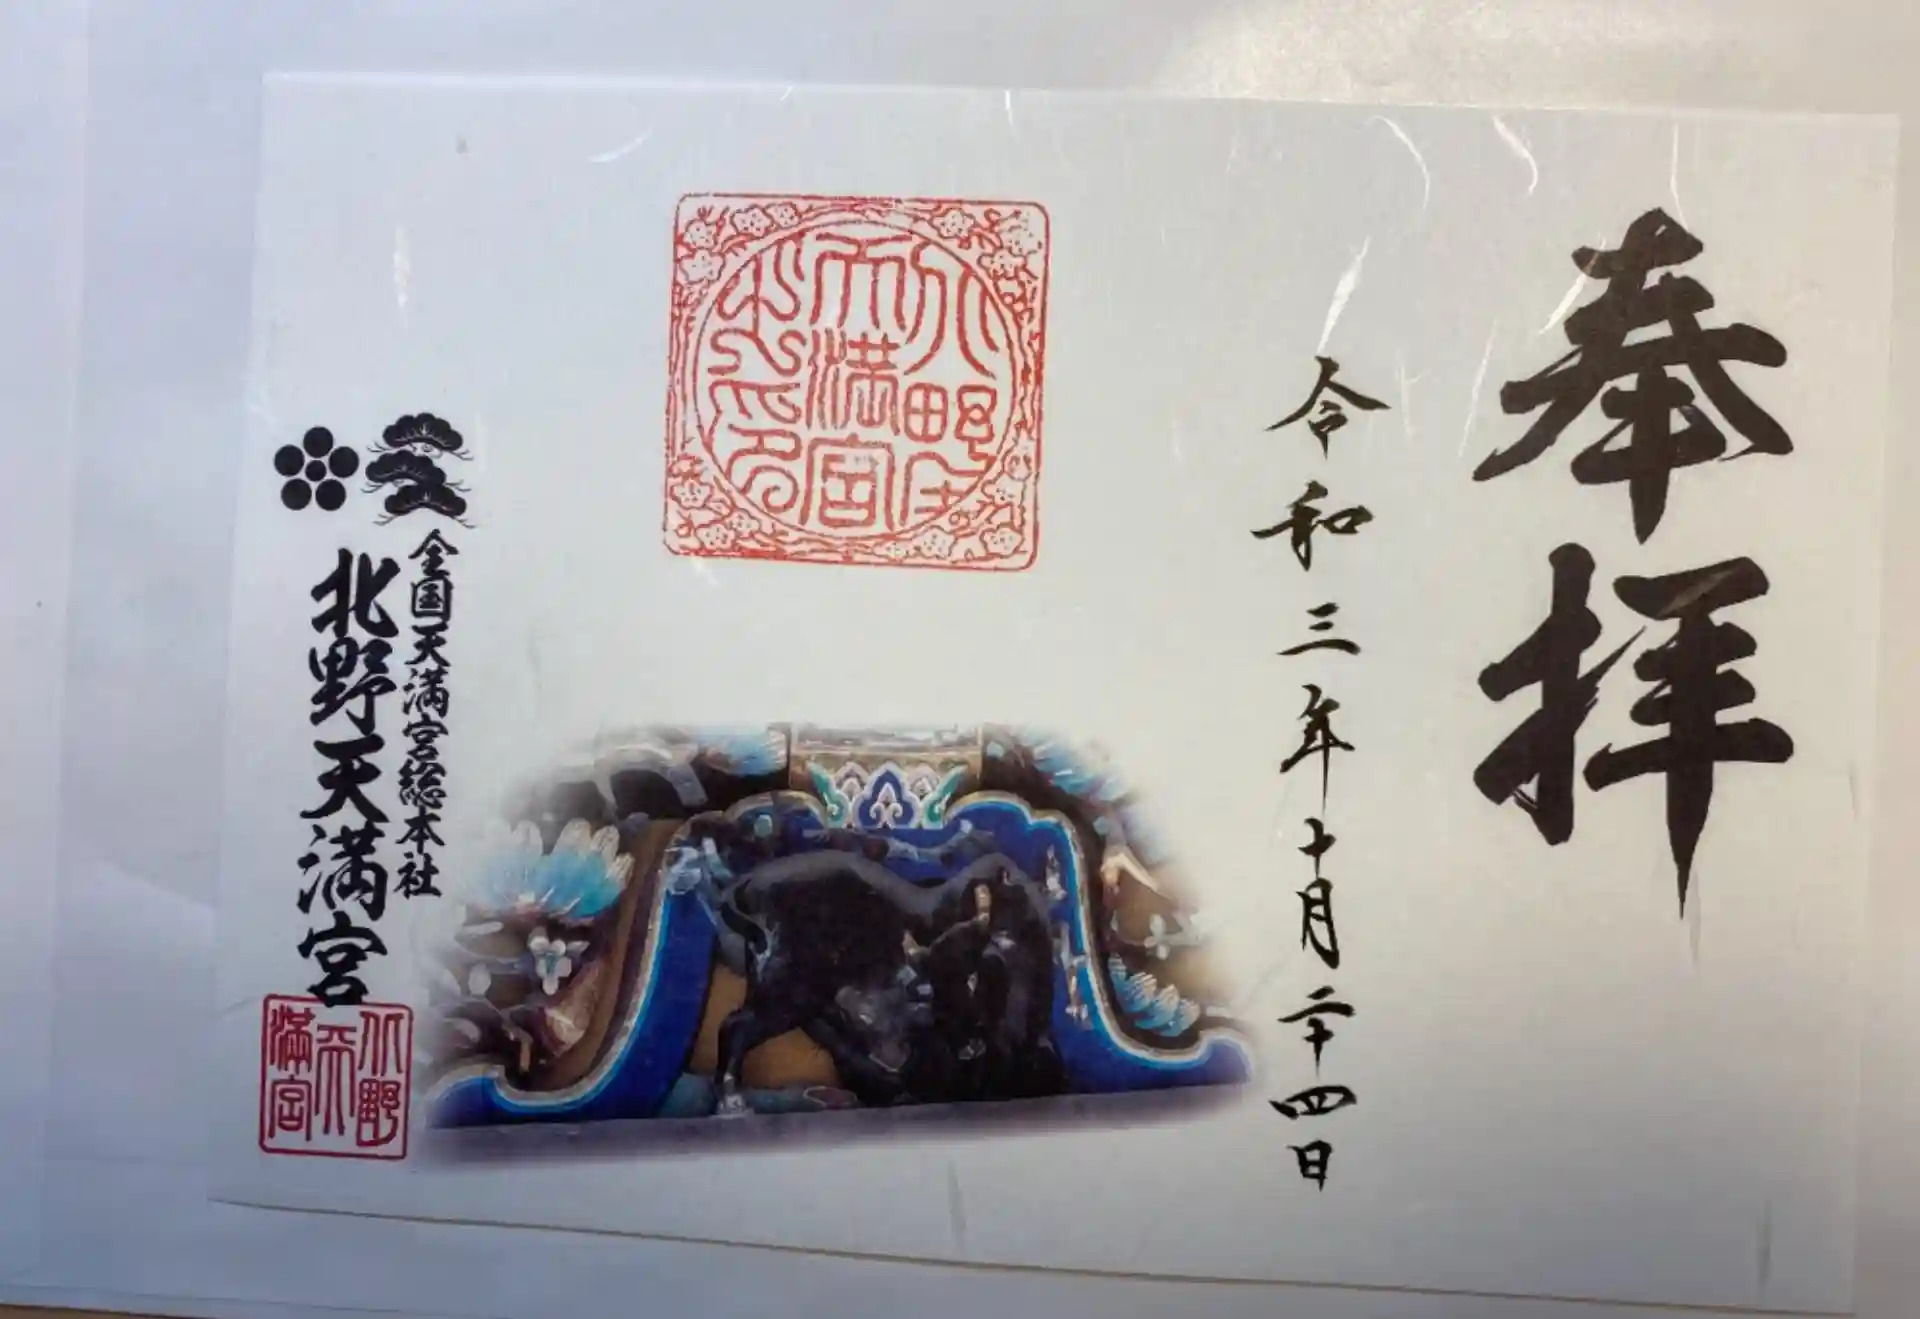 奉拝
令和三年十月二十四日
北野天満宮之印
全国天満宮総本社
北野天満宮
北野天満宮